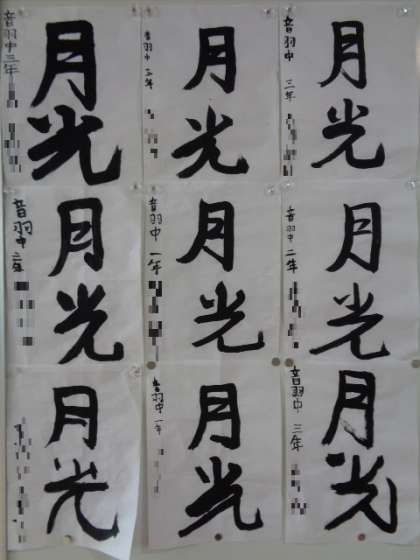 月光
音羽中三年
月光
音羽中三年
月光
音羽中 三年
月光
音羽中 二年
月光
音羽中 一年
月光
音羽中 二年
月光
月光
音羽中 一年
月光
音羽中 三年